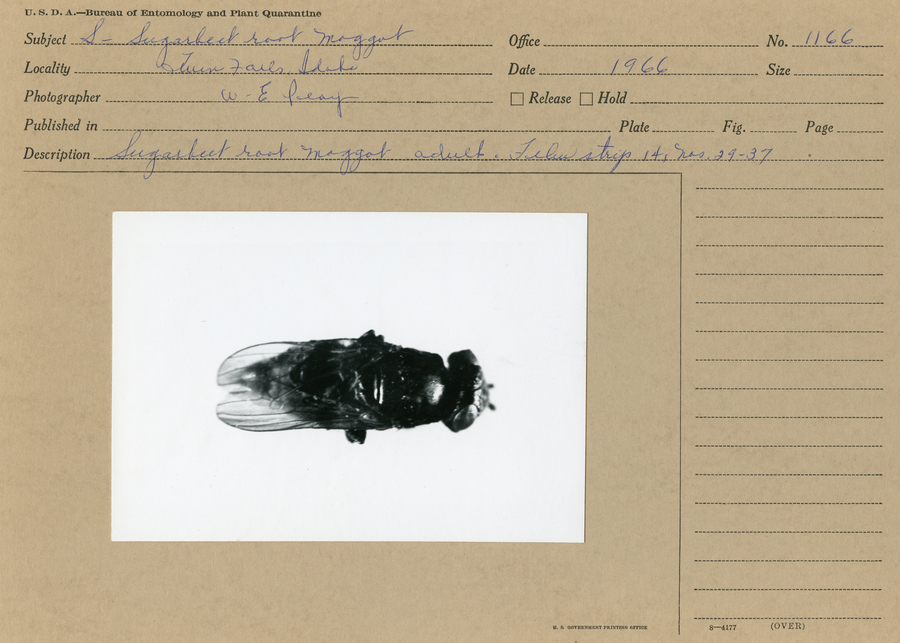 U. S. D. A.—Bureau of Entomology and Plant Quarantine
Subject S- Sugarbeet root Maggot Office No. 1166
Locality Twin Falls, Idaho Date 1966 Size
Photographer W. E. Peay Release Hold
Published in Plate Fig. Page
Description Sugarbeet root Maggot adult. Film strip 14, Nos. 29-37
U. S. GOVERNMENT PRINTING OFFICE 8—4177 (OVER)